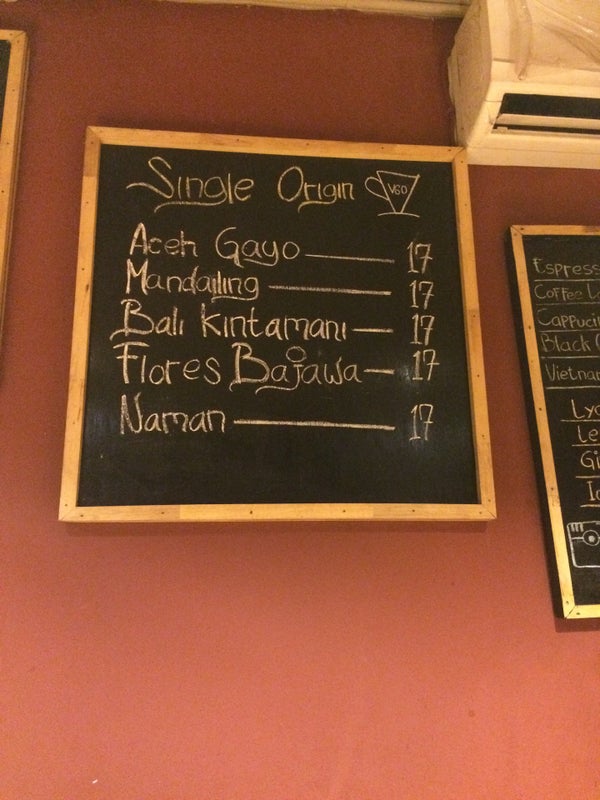 Single Origin V60
Aceh Gayo 17
Mandailing 17
Bali Kintamani 17
Flores Bajawa 17
Naman 17
Espress
Coffee L
Cappucin
Black
Vietnam
Ly
Le
Gi
I